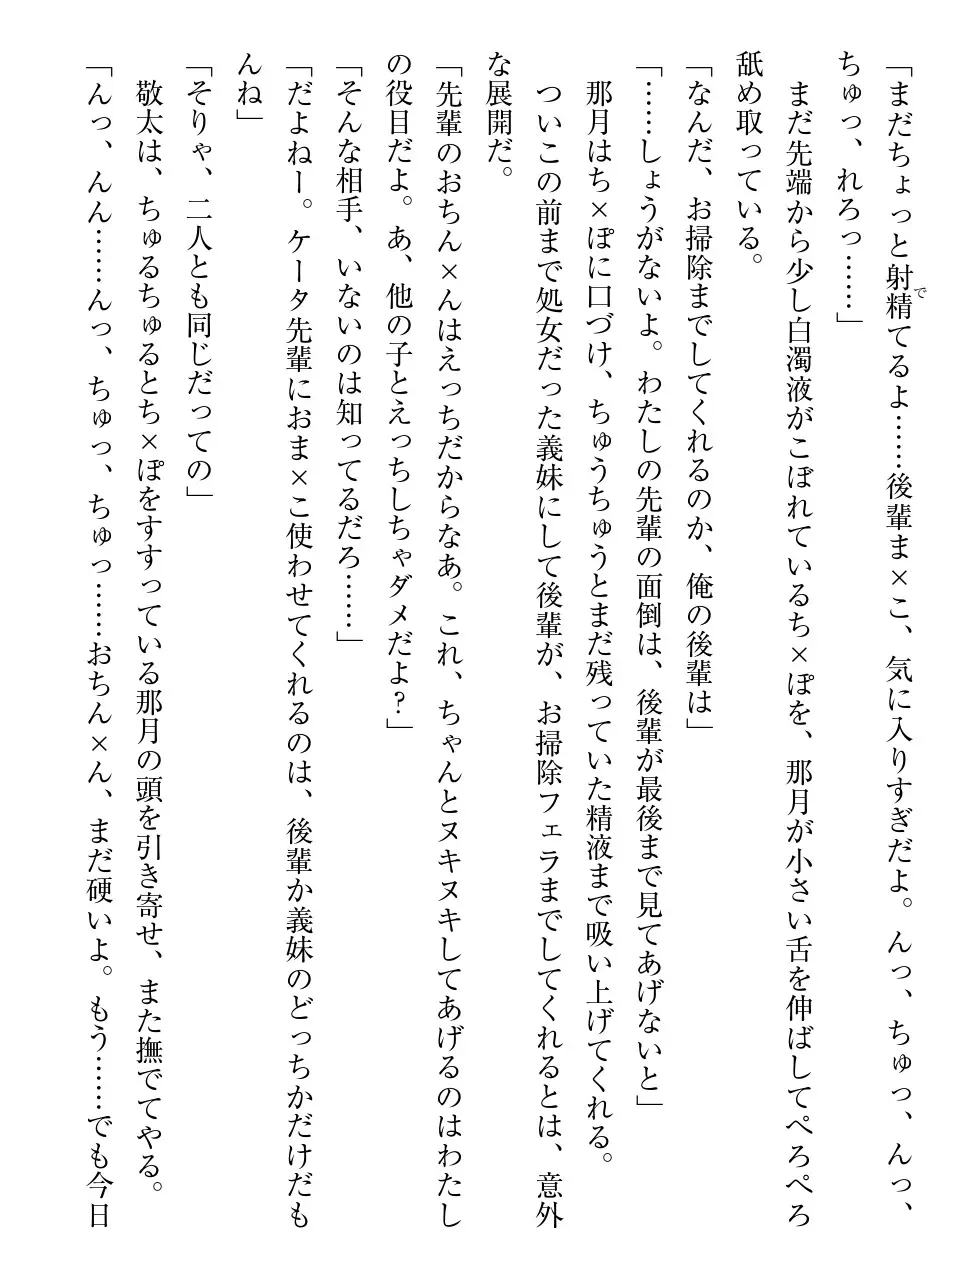 「まだちょっと射精てるよ……後輩ま×こ、気に入りすぎだよ。んっ、ちゅっ、んっ、
ちゅっ、れろっ……」
まだ先端から少し白濁液がこぼれているち×ぽを、那月が小さい舌を伸ばしてぺろぺろ
舐め取っている。
「なんだ、お掃除までしてくれるのか、俺の後輩は」
「……しょうがないよ。わたしの先輩の面倒は、後輩が最後まで見てあげないと」
那月はち×ぽに口づけ、ちゅうちゅうとまだ残っていた精液まで吸い上げてくれる。
ついこの前まで処女だった義妹にして後輩が、お掃除フェラまでしてくれるとは、意外
な展開だ。
「先輩のおちん×んはえっちだからなあ。これ、ちゃんとヌキヌキしてあげるのはわたし
の役目だよ。あ、他の子とえっちしちゃダメだよ?」
「そんな相手、いないのは知ってるだろ……」
「だよねー。ケータ先輩におま×こ使わせてくれるのは、後輩か義妹のどっちかだけだも
んね」
「そりゃ、二人とも同じだっての」
敬太は、ちゅるちゅるとち×ぽをすすっている那月の頭を引き寄せ、また撫でてやる。
「んっ、んん……んっ、ちゅっ、ちゅっ……おちん×ん、まだ硬いよ。もう……でも今日